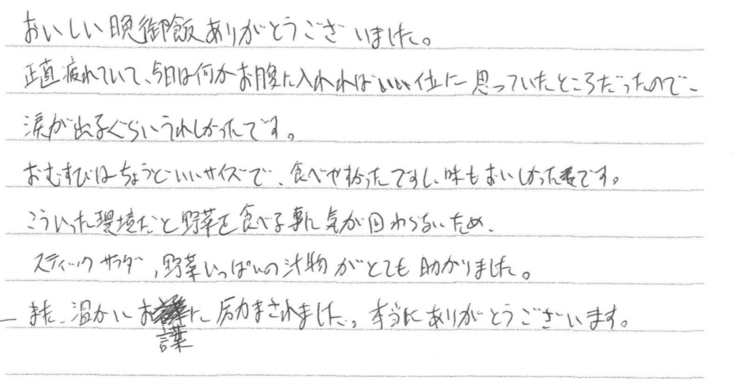 おいしい晩御飯ありがとうございました。
正直疲れていて、今日は何かお腹に入れればいい位に思っていたところだったので、
涙が出るぐらいうれしかったです。
おむすびはちょうどいいサイズで、食べやすかったですし、味もおいしかったです。
こういった環境だと野菜を食べる事に気が回わらないため、
スティックサラダ、野菜いっぱいの汁物がとても助かりました。
また、温かいお言葉に励まされました。本当にありがとうございます。